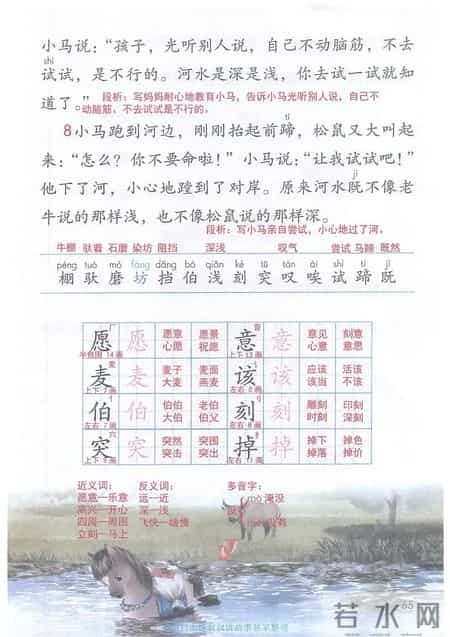 小马说：“孩子，光听别人说，自己不动脑筋，不去
shì
试试，是不行的。河水是深是浅，你去试一试就知
道了。”
段析：写妈妈耐心地教育小马，告诉小马光听别人说，自己不
动脑筋、不去试试是不行的。
tí
8小马跑到河边，刚刚抬起前蹄，松鼠又大叫起
来：“怎么？你不要命啦！”小马说：“让我试试吧！”
jì
他下了河，小心地蹚到了对岸。原来河水既不像老
牛说的那样浅，也不像松鼠说的那样深。
段析：写小马亲自尝试，小心地过了河。
牛棚 驮着 石磨 染坊 阻挡 深浅 叹气 尝试 马蹄 既然
péng tuó mò fáng dǎng bó qiǎn kè tū tàn ài shì tí jì
棚 驮 磨 坊 挡 伯 浅 刻 突 叹 唉 试 蹄 既
愿 愿 愿意 愿景 意 意 意见 刻意
心愿 祝愿 心意 意思
半包围 14画 上下 13画
麦 麦 麦子 麦面 该 该 应该 活该
大麦 燕麦 该当 不该
上下 7画 左右 8画
伯 伯 伯伯 老伯 刻 刻 雕刻 印刻
大伯 伯父 时刻 深刻
左右 7画 左右 8画
突 突 突然 突围 掉 掉 掉下 掉色
突击 突出 掉落 掉价
上下 9画 左右 11画
近义词： 反义词： 多音字：
愿意—乐意 远—近 mò 淹没
高兴—开心 深—浅 没
四周—周围 飞快—缓慢 méi 没有
立刻—马上
65
若水网